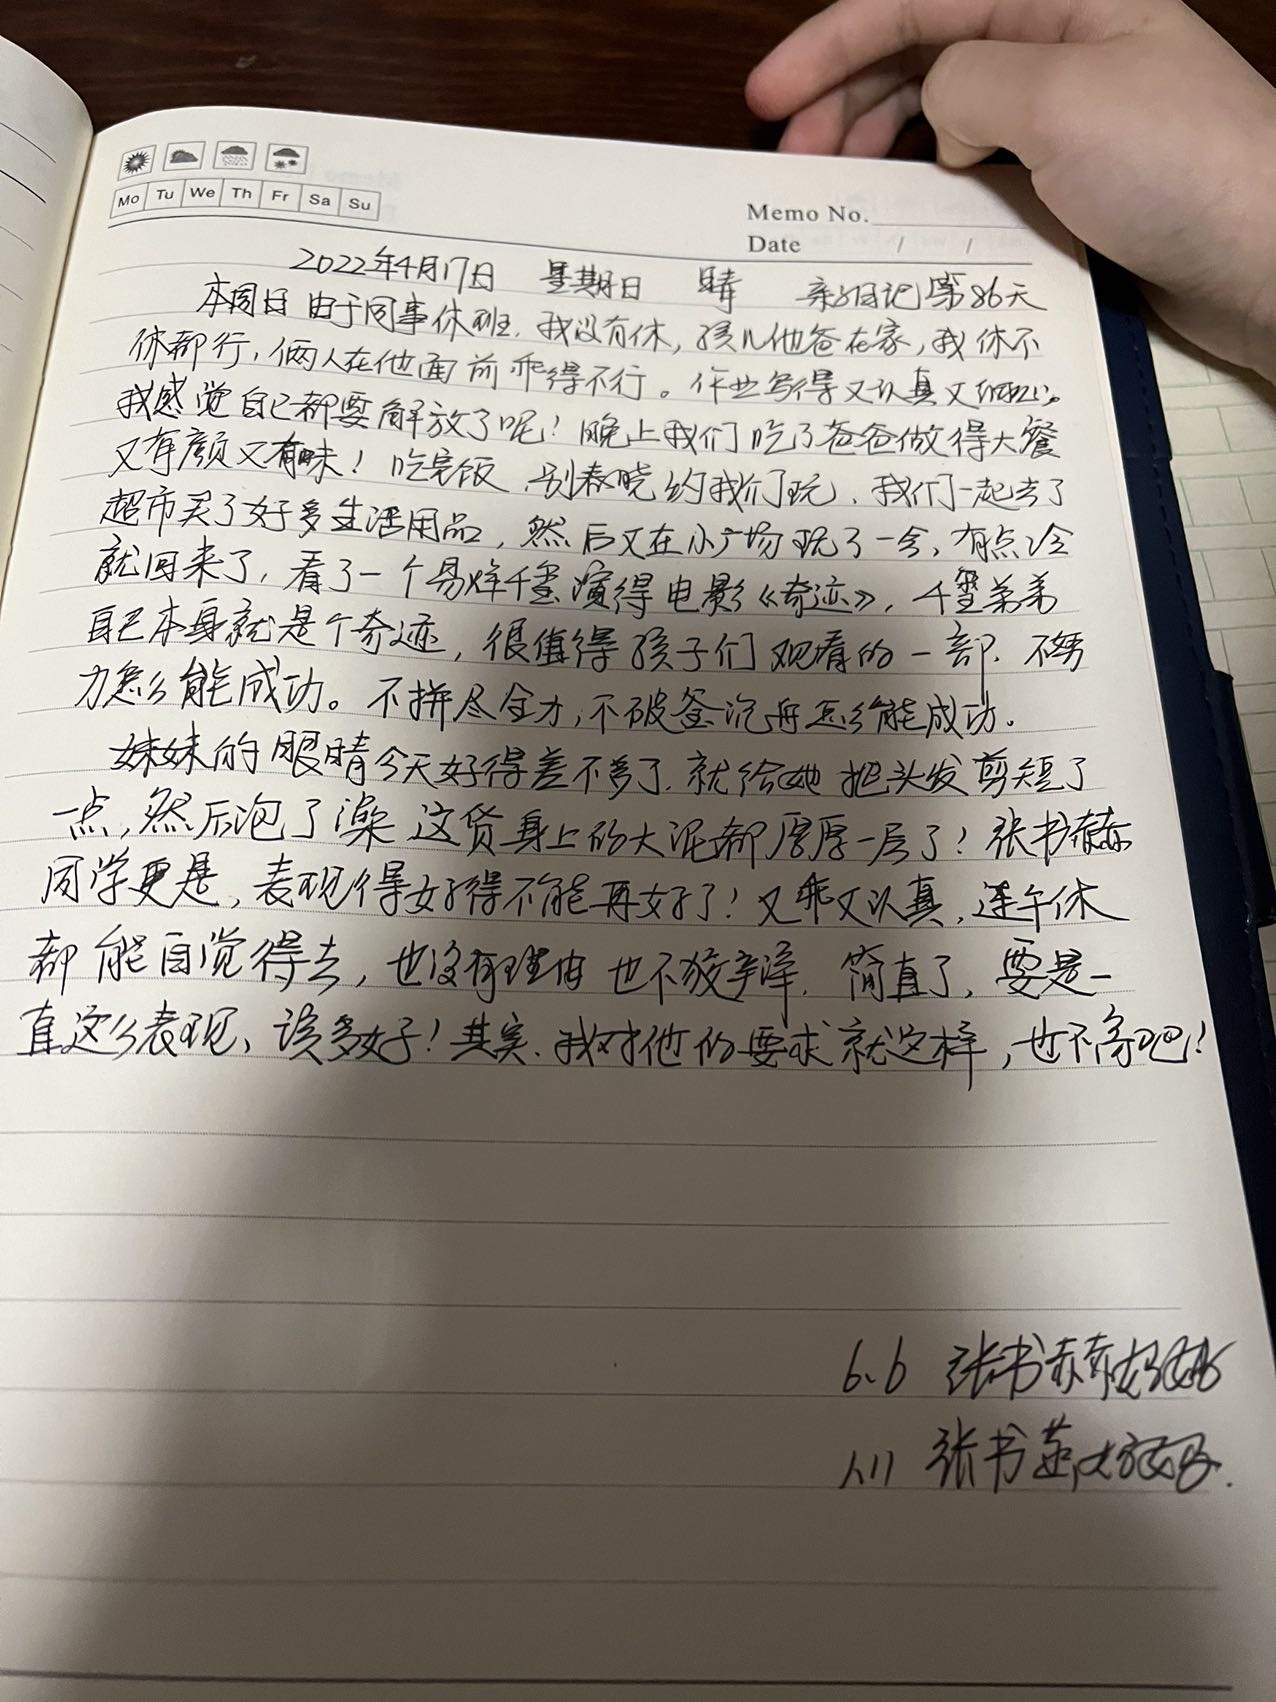 Mo Tu We Th Fr Sa Su
Memo No.
Date / /
2022年4月17日 星期日 晴 亲子日记第86天
本周日由于同事休班,我没有休,孩儿他爸在家,我休不
休都行,俩人在他面前乖得不行。作业写得又认真又
我感觉自己都要解放了呢!晚上我们吃了爸爸做得大餐
又有颜又有味!吃完饭,别春晓约我们玩,我们一起去了
超市买了好多生活用品,然后又在小广场玩了一会,有点冷
就回来了,看了一个易烊千玺演得电影《奇迹》,千玺弟弟
自己本身就是个奇迹,很值得孩子们观看的一部,不努
力怎么能成功。不拼尽全力,不破釜沉舟怎么能成功。
妹妹的眼睛今天好得差不多了,就给她把头发剪短了
一点,然后泡了澡 这货身上的大泥都厚厚一层了!张书赫
同学更是,表现得好得不能再好了!又乖又认真,连午休
都能自觉得去,也没有理由也不狡辩,简直了,要是一
直这么表现,该多好!其实,我对他的要求就这样,也不高吧!
6.6 张书赫妈妈
1.11 张书